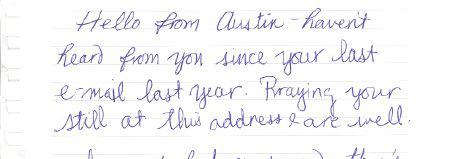 Hello from Austin - haven't
heard from you since your last
e-mail last year. Praying your
still at this address & are well.